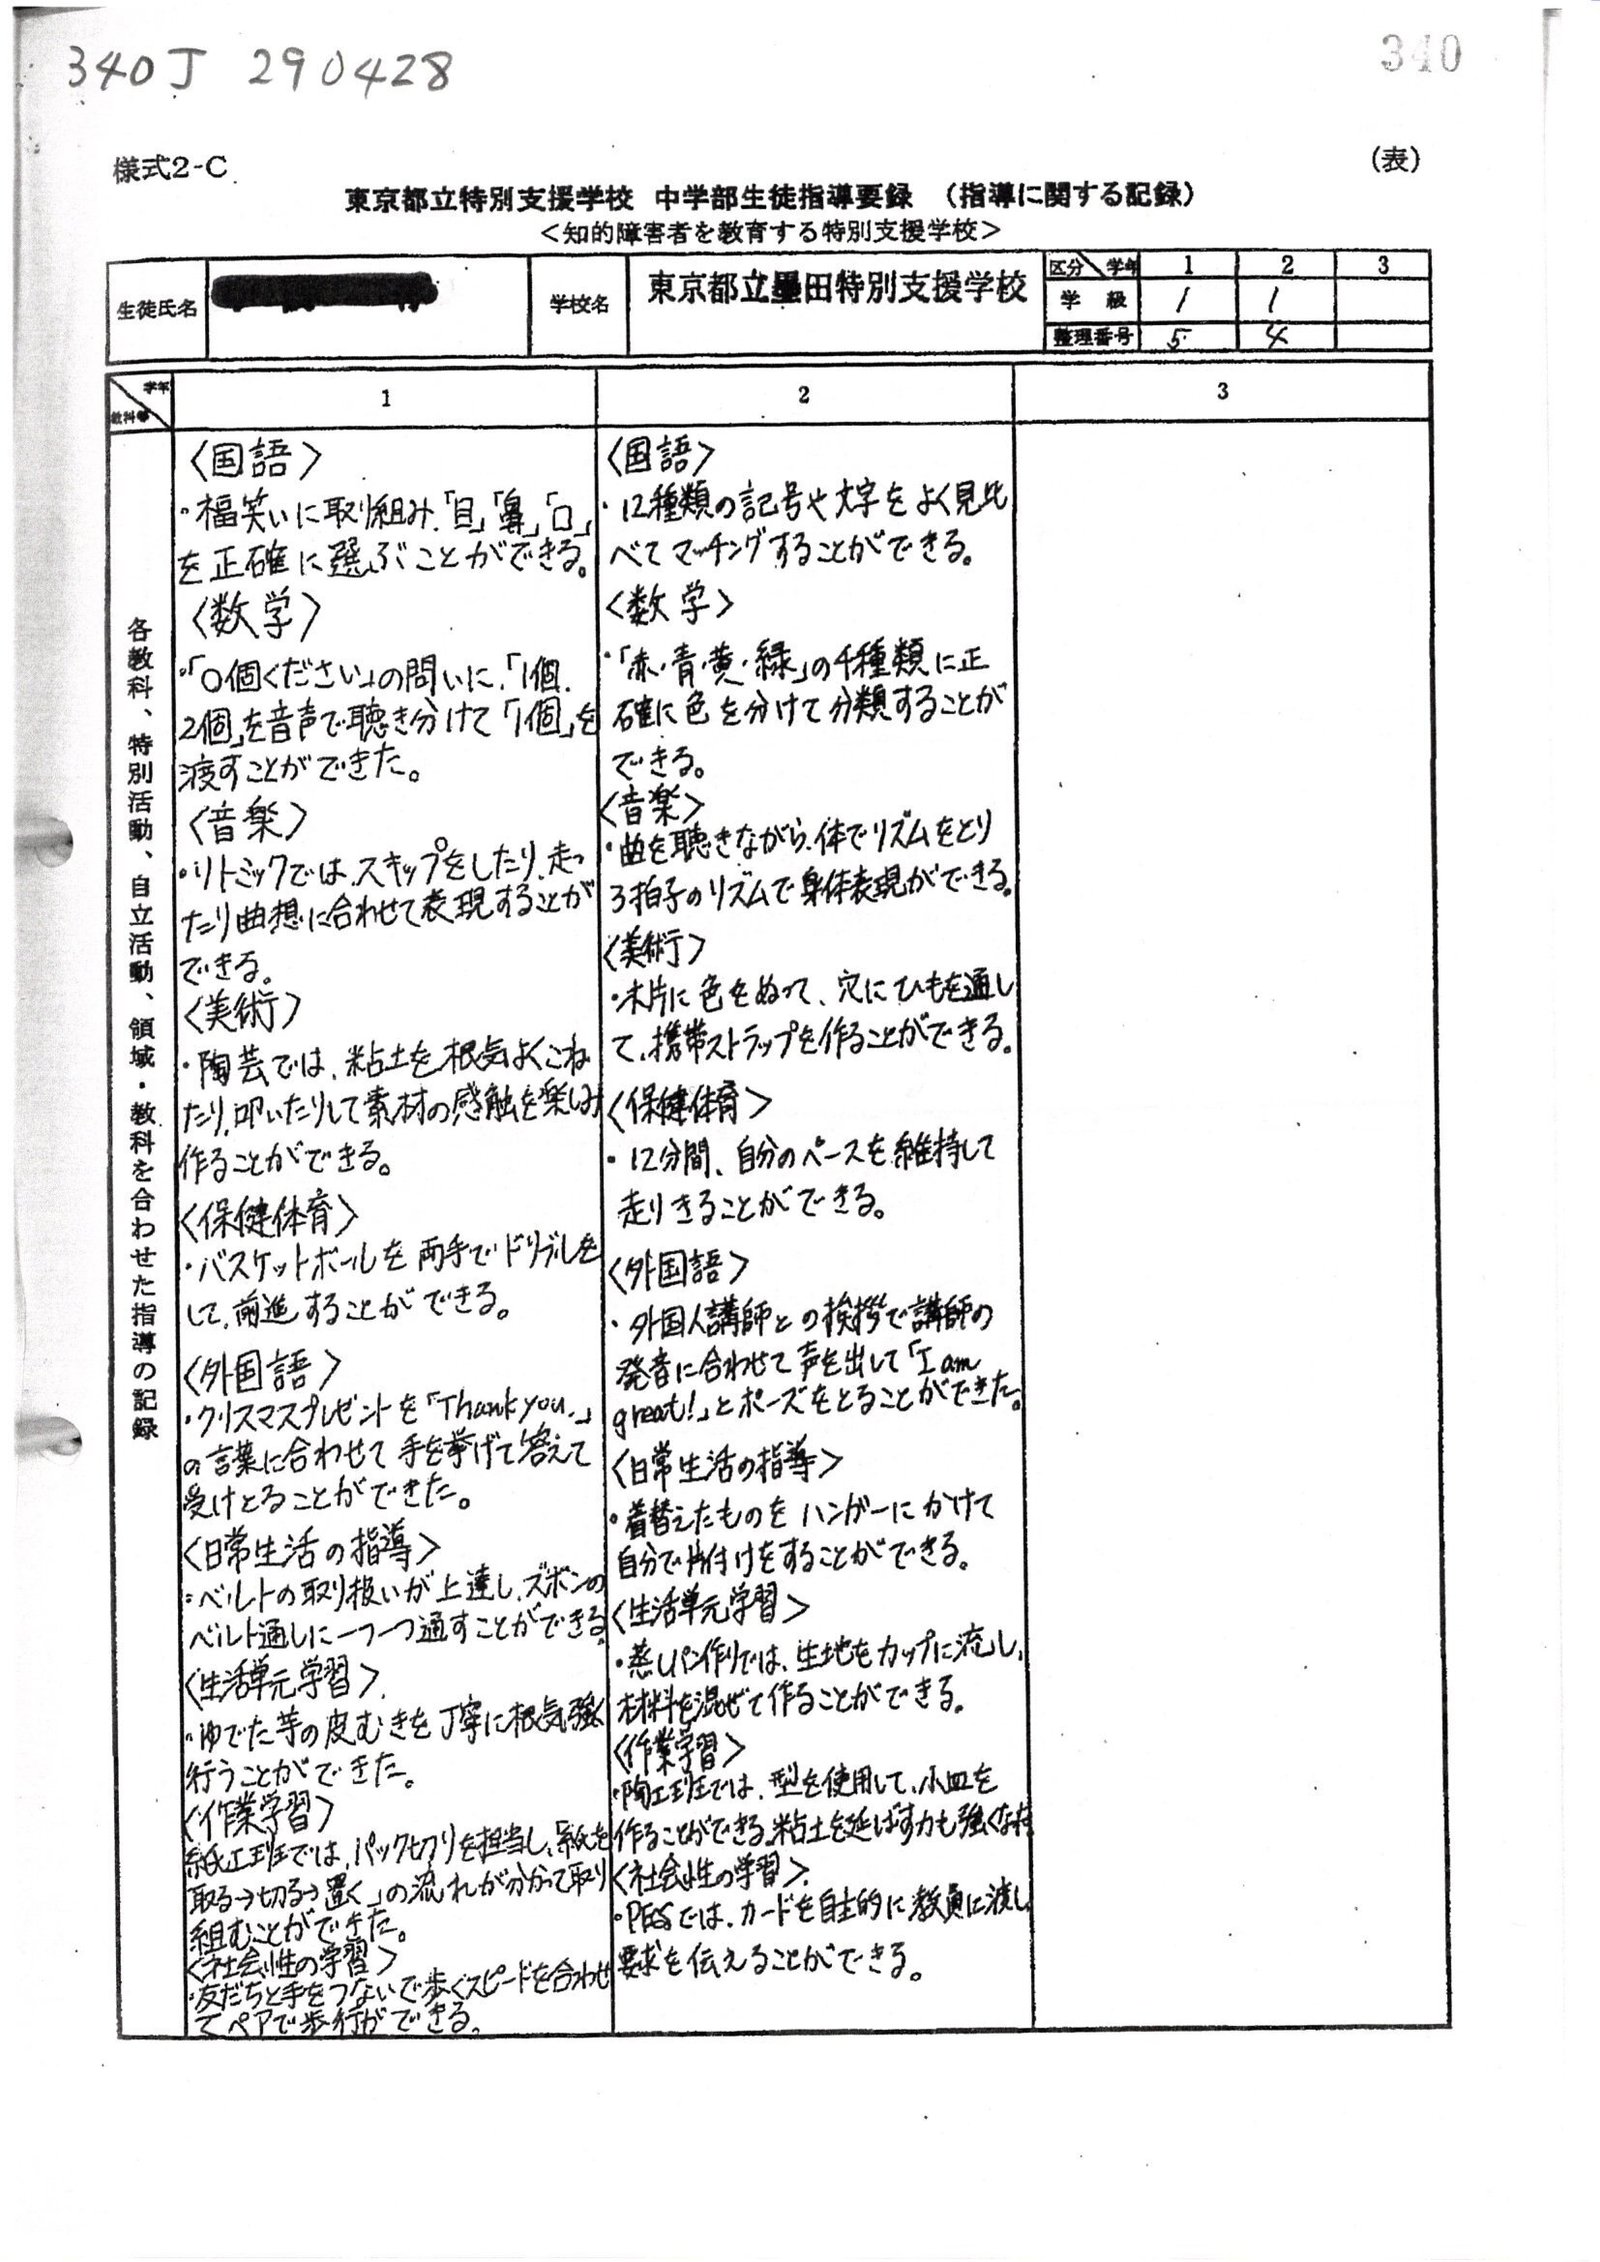 340J 290428
340
様式2-C
(表)
東京都立特別支援学校 中学部生徒指導要録 (指導に関する記録)
<知的障害者を教育する特別支援学校>
生徒氏名
学校名
東京都立墨田特別支援学校
区分 学年 1 2 3
学級 1 1
整理番号 5 4
学年
教科等
1
2
3
各教科、特別活動、自立活動、領域・教科を合わせた指導の記録
〈国語〉
・福笑いに取り組み、「目」「鼻」「口」
を正確に選ぶことができる。
〈数学〉
・「○個ください」の問いに、「1個、
2個」を音声で聴き分けて「1個」を
渡すことができた。
〈音楽〉
・リトミックでは、スキップをしたり、走っ
たり曲想に合わせて表現することが
できる。
〈美術〉
・陶芸では、粘土を根気よくこね
たり、叩いたりして素材の感触を楽しみ
作ることができる。
〈保健体育〉
・バスケットボールを両手でドリブルを
して、前進することができる。
〈外国語〉
・クリスマスプレゼントを「Thank you.」
の言葉に合わせて手を挙げて答えて
受けとることができた。
〈日常生活の指導〉
・ベルトの取り扱いが上達し、ズボンの
ベルト通しに一つ一つ通すことができる。
〈生活単元学習〉
・ゆでた芋の皮むきを丁寧に根気強く
行うことができた。
〈作業学習〉
紙工班では、パック切りを担当し、「紙を
取る→切る→置く」の流れが分かって取り
組むことができた。
〈社会性の学習〉
・友だちと手をつないで歩くスピードを合わせ
てペアで歩行ができる。
〈国語〉
・12種類の記号や文字をよく見比
べてマッチングすることができる。
〈数学〉
・「赤・青・黄・緑」の4種類に正
確に色を分けて分類することが
できる。
〈音楽〉
・曲を聴きながら、体でリズムをとり
3拍子のリズムで身体表現ができる。
〈美術〉
・木片に色をぬって、穴にひもを通し
て、携帯ストラップを作ることができる。
〈保健体育〉
・12分間、自分のペースを維持して
走りきることができる。
〈外国語〉
・外国人講師との挨拶で講師の
発音に合わせて声を出して「I am
great!」とポーズをとることができた。
〈日常生活の指導〉
・着替えたものをハンガーにかけて
自分で片付けをすることができる。
〈生活単元学習〉
・蒸しパン作りでは、生地をカップに流し、
材料を混ぜて作ることができる。
〈作業学習〉
・陶工班では、型を使用して、小皿を
作ることができる。粘土を延ばす力も強くなった
〈社会性の学習〉
・PECSでは、カードを自主的に教員に渡し
要求を伝えることができる。